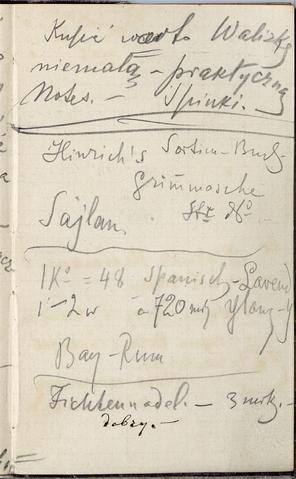 Kupić warto Walizkę
niemałą – praktyczną
Notes. – Spinki. –
Hinrich's Sortim-Buch
Grimmasche
Str. No
Sajlan.
1 Ko = 48 Spanisch-Lavend
1–2 w a 720 mk Ylang-Y
Bay-Rum
Fichtennadel. – 3 mrk.
dobry. –